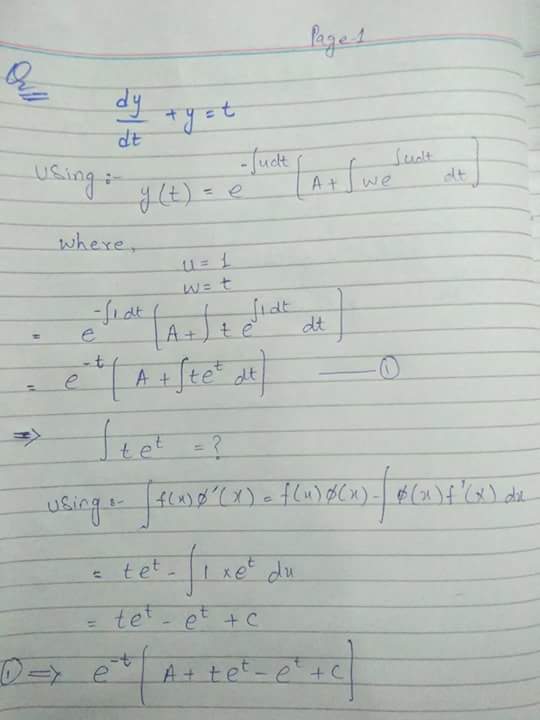 Page-1
Q
dy/dt + y = t
Using :- y(t) = e^(-∫udt) [A + ∫ we^(∫udt) dt]
where,
u = 1
w = t
= e^(-∫1dt) [A + ∫ t e^(∫1dt) dt]
= e^(-t) [A + ∫te^t dt] —— ①
⇒ ∫ te^t = ?
using :- ∫f(x)ϕ'(x) = f(x)ϕ(x) - ∫ϕ(x)f'(x) dx
= te^t - ∫1×e^t du
= te^t - e^t + c
① ⇒ e^(-t) [A + te^t - e^t + c]